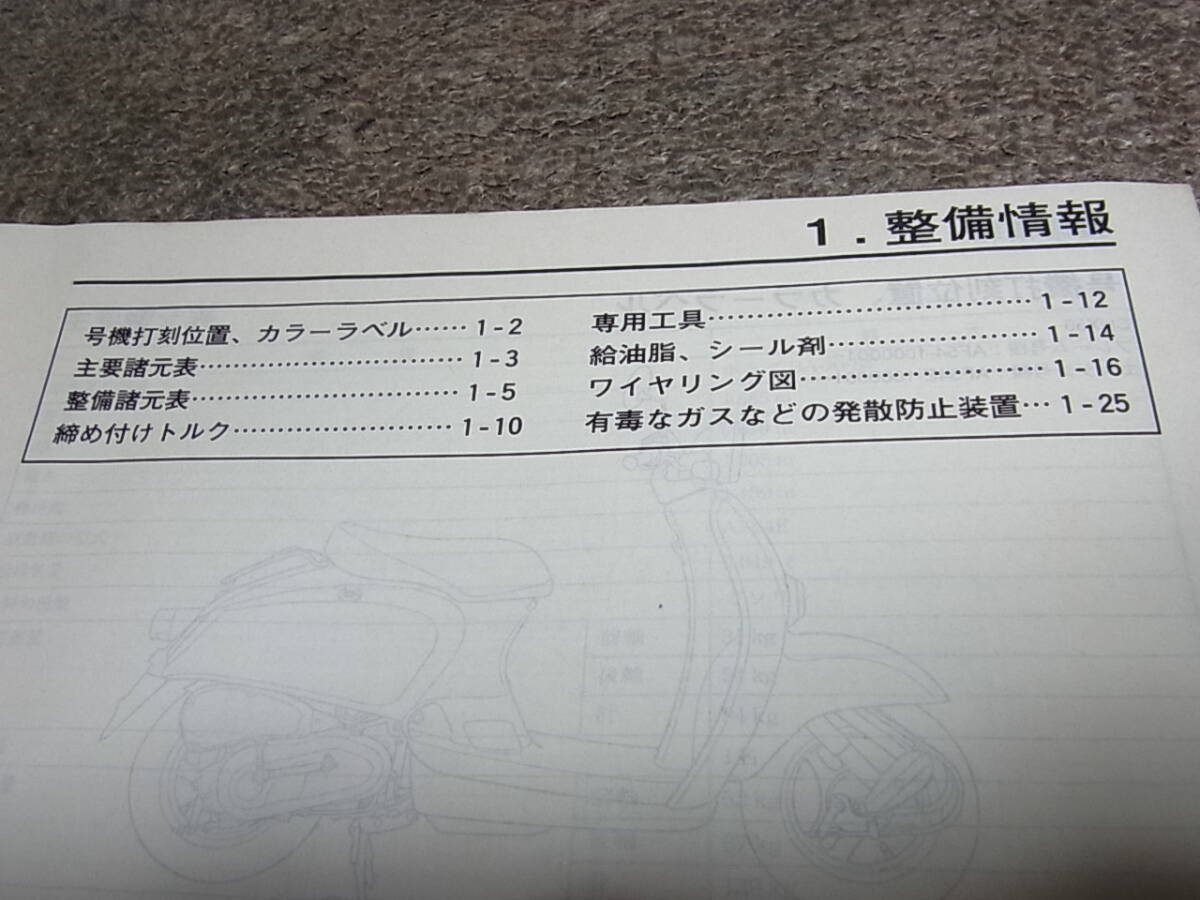 1．整備情報
号機打刻位置、カラーラベル…… 1-2
主要諸元表………………………… 1-3
整備諸元表………………………… 1-5
締め付けトルク…………………… 1-10
専用工具…………………………… 1-12
給油脂、シール剤………………… 1-14
ワイヤリング図…………………… 1-16
有毒なガスなどの発散防止装置… 1-25